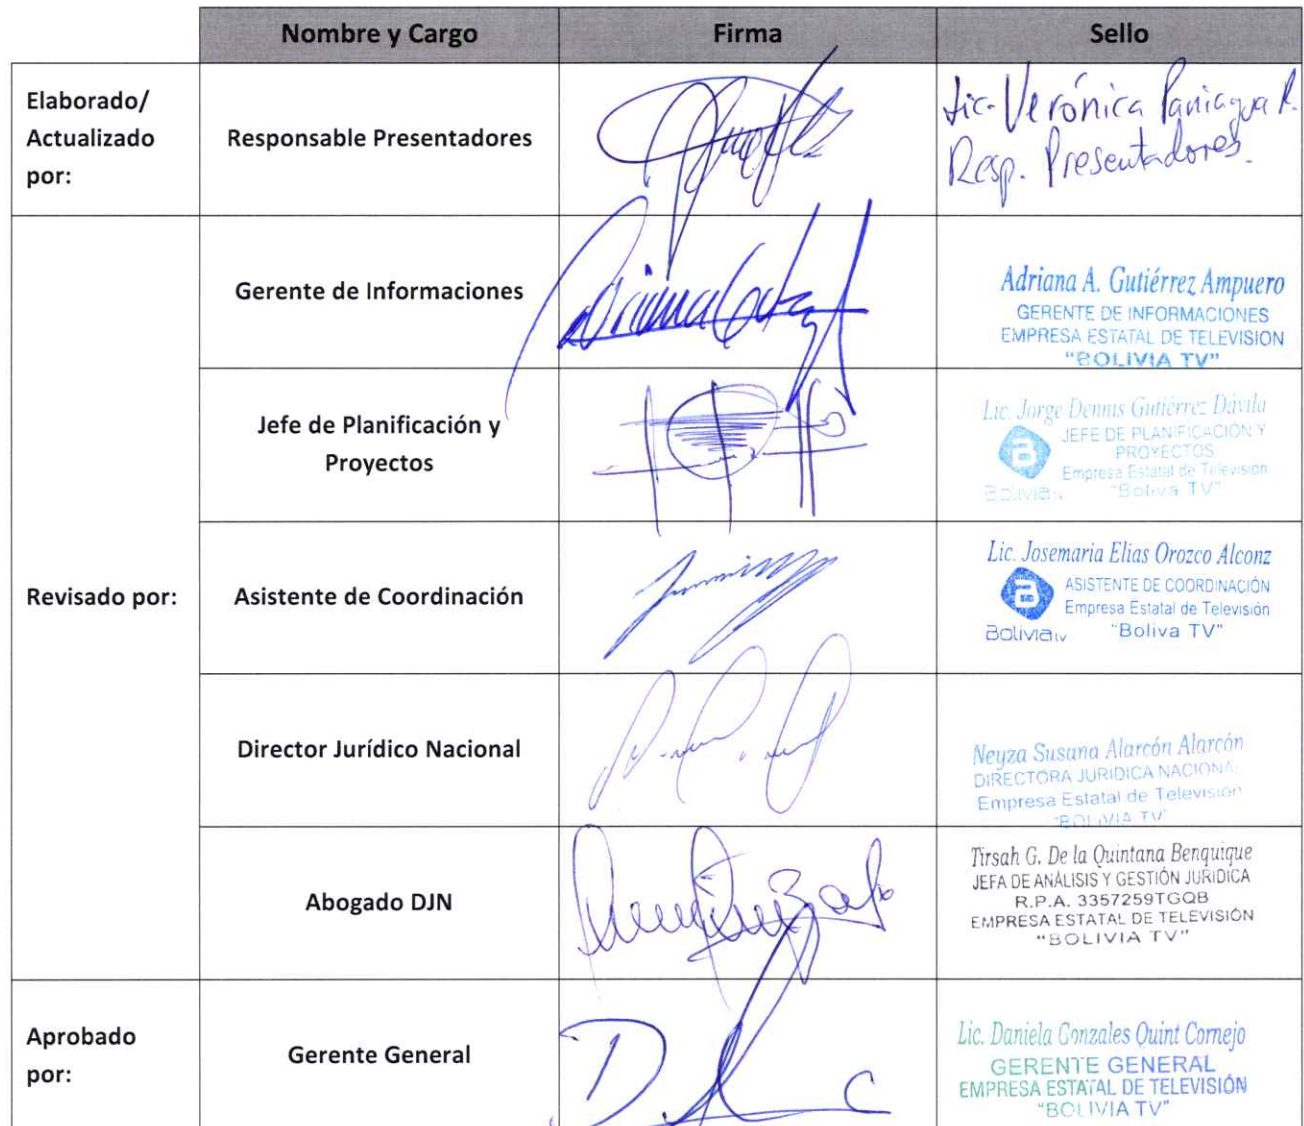 Nombre y Cargo
Firma
Sello
Elaborado/
Actualizado
por:
Responsable Presentadores
Lic. Verónica Paniagua R.
Resp. Presentadores.
Revisado por:
Gerente de Informaciones
Adriana A. Gutiérrez Ampuero
GERENTE DE INFORMACIONES
EMPRESA ESTATAL DE TELEVISION
"BOLIVIA TV"
Jefe de Planificación y
Proyectos
Lic. Jorge Dennis Gutiérrez Dávila
JEFE DE PLANIFICACIÓN Y
PROYECTOS
Empresa Estatal de Televisión
Bolivia tv "Boliva TV"
Asistente de Coordinación
Lic. Josemaria Elias Orozco Alconz
ASISTENTE DE COORDINACIÓN
Empresa Estatal de Televisión
Bolivia tv "Boliva TV"
Director Jurídico Nacional
Neyza Susana Alarcón Alarcón
DIRECTORA JURIDICA NACIONAL
Empresa Estatal de Televisión
"BOLIVIA TV"
Abogado DJN
Tirsah G. De la Quintana Benquique
JEFA DE ANÁLISIS Y GESTIÓN JURIDICA
R.P.A. 3357259TGQB
EMPRESA ESTATAL DE TELEVISIÓN
"BOLIVIA TV"
Aprobado
por:
Gerente General
Lic. Daniela Gonzales Quint Cornejo
GERENTE GENERAL
EMPRESA ESTATAL DE TELEVISIÓN
"BOLIVIA TV"